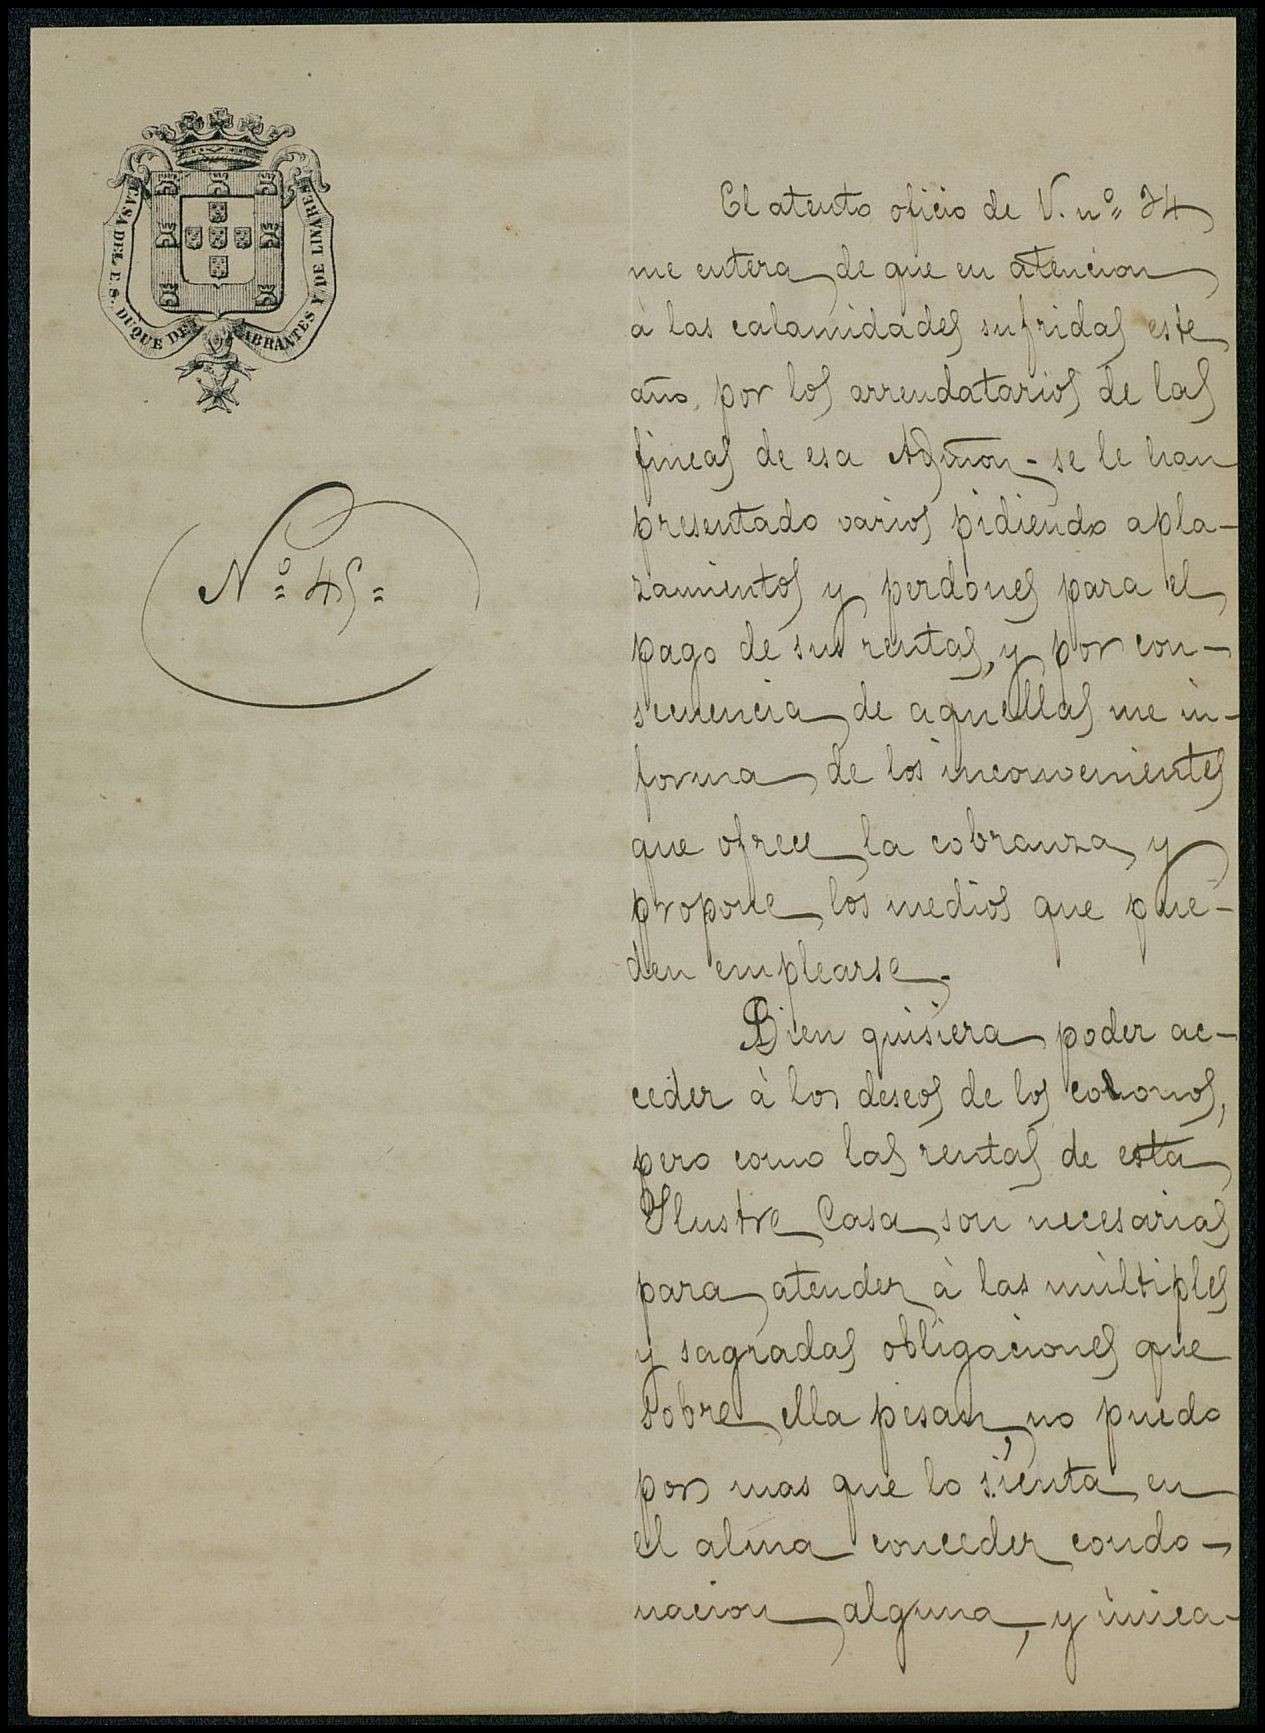 CASA DEL E. S. DUQUE DE ABRANTES Y DE LINARES
Nº 45=
El atento oficio de V. nº 34
me entera de que en atencion
à las calamidades sufridas este
año, por los arrendatarios de las
fincas de esa Admon - se le han
presentado varios pidiendo apla-
zamientos y perdones para el
pago de sus rentas, y por con-
secuencia de aquellas me in-
forma de los inconvenientes
que ofrece la cobranza y
propone los medios que pue-
den emplearse.
Bien quisiera poder ac-
ceder à los deseos de los colonos,
pero como las rentas de esta
Ilustre Casa son necesarias
para atender à las mùltiples
y sagradas obligaciones que
sobre ella pesan, no puedo
por mas que lo sienta en
el alma conceder condo-
nacion alguna, y ùnica-